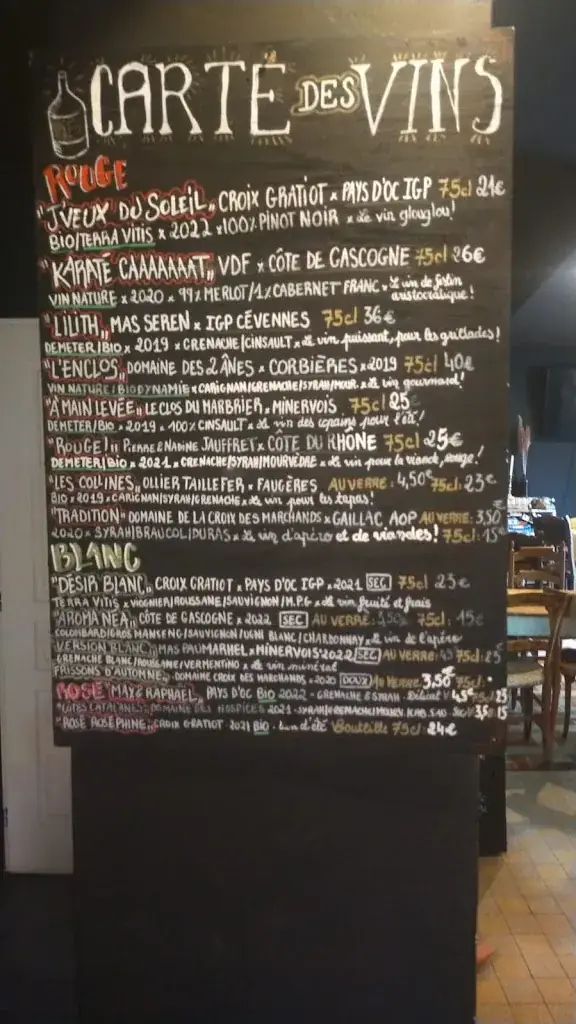 CARTE DES VINS
ROUGE
"J'VEUX DU SOLEIL" CROIX GRATIOT x PAYS D'OC IGP 75cl 21€
BIO/TERRA VITIS x 2022 x 100% PINOT NOIR x Le vin glouglou!
"KARATÉ CAAAAAAT" VDF x CÔTE DE GASCOGNE 75cl 26€
VIN NATURE x 2020 x 99% MERLOT/1% CABERNET FRANC x Le vin de festin aristocratique!
"LILITH" MAS SEREN x IGP CÉVENNES 75cl 36€
DEMETER/BIO x 2019 x GRENACHE/CINSAULT x Le vin puissant, pour les grillades!
"L'ENCLOS" DOMAINE DES 2 ÂNES x CORBIÈRES x 2019 75cl 40€
VIN NATURE/BIODYNAMIE x CARIGNAN/GRENACHE/SYRAH/MOUR. x Le vin gourmand!
"À MAIN LEVÉE" LE CLOS DU MARBRIER x MINERVOIS 75cl 25€
DEMETER/BIO x 2019 x 100% CINSAULT x Le vin des copains pour l'été!
"ROUGE!" PIERRE & NADINE JAUFFRET x CÔTE DU RHÔNE 75cl 25€
DEMETER/BIO x 2021 x GRENACHE/SYRAH/MOURVÈDRE x Le vin pour la viande, rouge!
"LES COLLINES" OLLIER TAILLEFER x FAUGÈRES AU VERRE: 4,50€ 75cl: 23€
BIO x 2019 x CARIGNAN/SYRAH/GRENACHE x Le vin pour les tapas!
"TRADITION" DOMAINE DE LA CROIX DES MARCHANDS x GAILLAC AOP AU VERRE: 3,50
2020 x SYRAH/BRAUCOL/DURAS x Le vin d'apéro et de viandes! 75cl: 15€
BLANC
"DÉSIR BLANC" CROIX GRATIOT x PAYS D'OC IGP x 2021 SEC 75cl 23€
TERRA VITIS x VIOGNIER/ROUSSANE/SAUVIGNON/M.P.G x Le vin fruité et frais
"AROMANÉA" CÔTE DE GASCOGNE x 2022 SEC AU VERRE: 3,50€ 75cl: 15€
COLOMBARD/GROS MANSENG/SAUVIGNON/UGNI BLANC/CHARDONNAY x Le vin de l'apéro
"VERSION BLANC" MAS PAUMARHEL x MINERVOIS 2022 SEC AU VERRE: 75cl: 25€
GRENACHE BLANC/ROUSSANE/VERMENTINO x Le vin minéral
"FRISSONS D'AUTOMNE" DOMAINE CROIX DES MARCHANDS x 2020 DOUX AU VERRE: 3,50€ 75cl:
ROSÉ "MAX & RAPHAEL" PAYS D'OC BIO 2022 - GRENACHE & SYRAH - 4,5€ 23
"CÔTES CATALANES" DOMAINE DES HOSPICES 2021 - SYRAH/GRENACHE/MOURV. 3,50 15
"ROSÉ ROSÉPHINE" CROIX GRATIOT 2021 BIO - d'été Bouteille 75cl: 24€